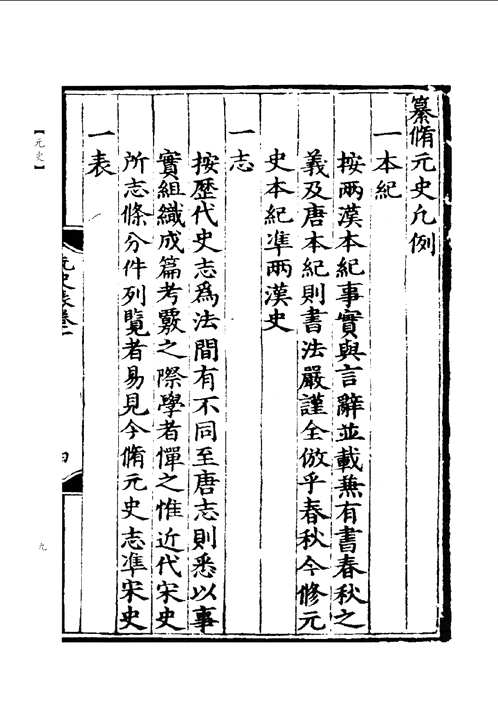 纂脩元史凡例
一本紀
按兩漢本紀事實與言辭並載蕪有書春秋之
義及唐本紀則書法嚴謹全倣乎春秋今修元
史本紀凖兩漢史
一志
按歷代史志爲法間有不同至唐志則悉以事
實組織成篇考覈之際學者憚之惟近代宋史
所志條分件列覽者易見今脩元史志凖宋史
一表
【元史】
九